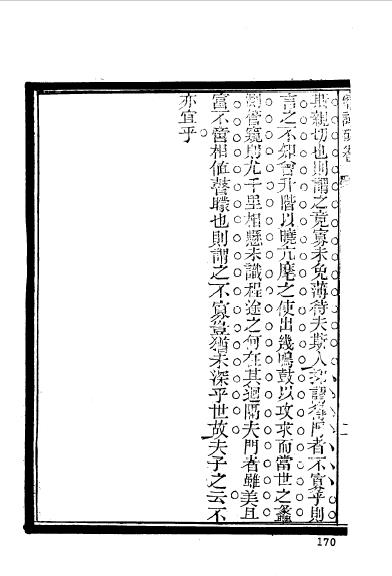 親切也則謂之竟寡未免薄待夫斯人謂得門者不寡乎則
言之不知曾升階以曉亢麾之使出幾鳴鼓以攻求而當世之蠡
測管窺則尤千里相懸未識程途之何在其迴隔夫門者雖美且
富不啻相值瞽矇也則謂之不寡豈猶未深乎世故夫子之云不
亦宜乎
二
170